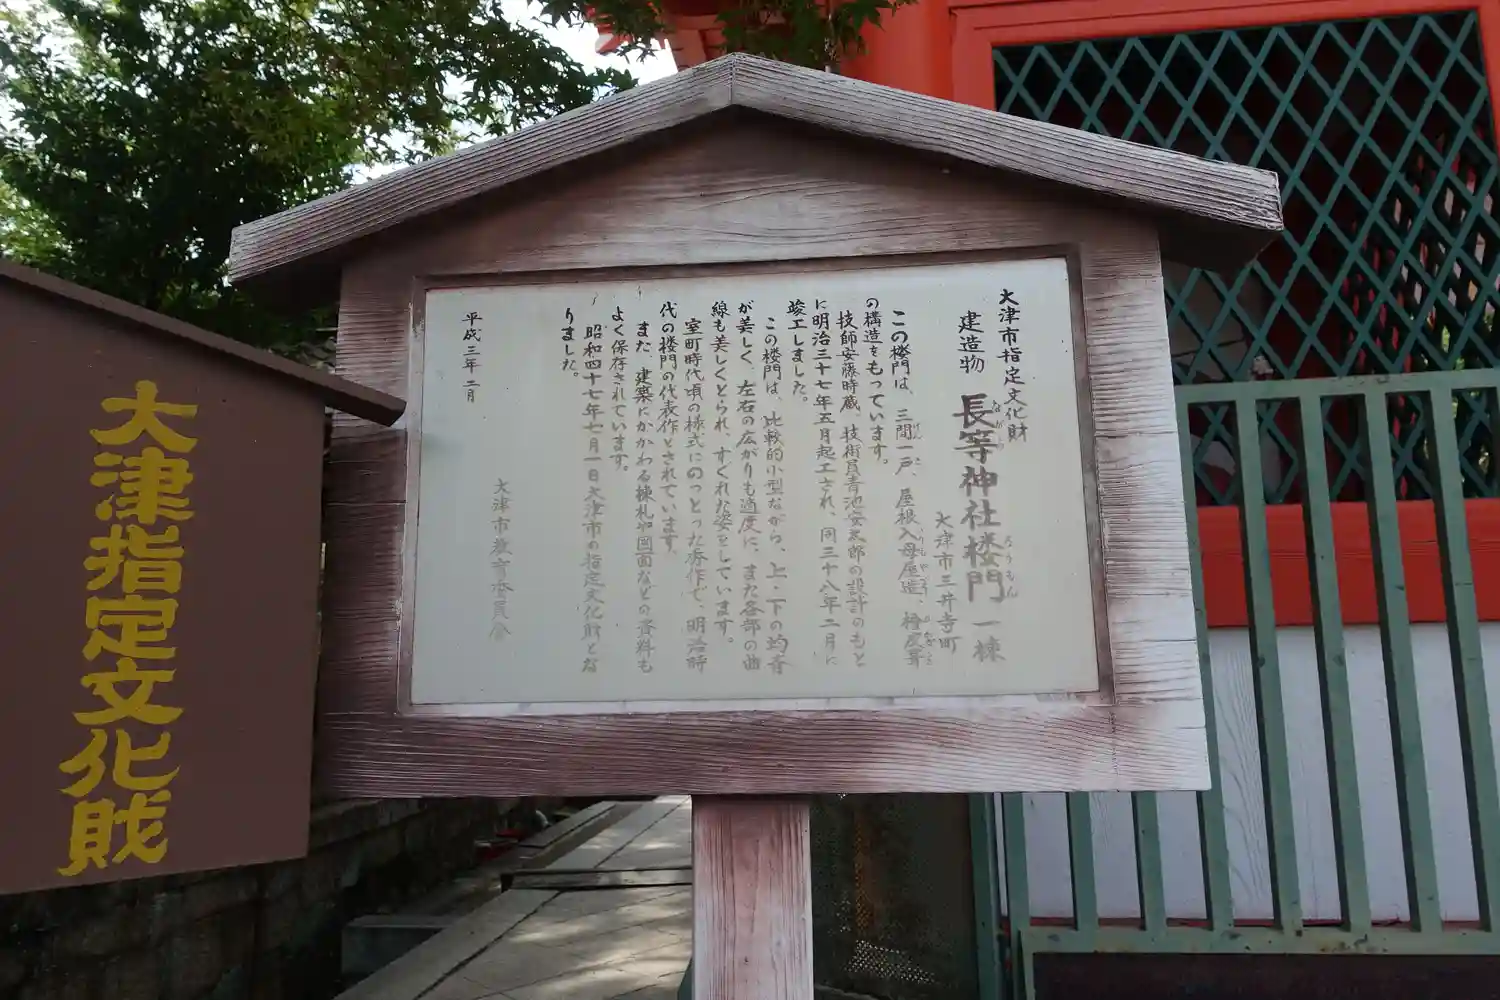 大津市指定文化財
建造物 長等神社楼門 一棟
ながら ろうもん
大津市三井寺町
この楼門は、三間一戸、屋根入母屋造、檜皮葺
の構造をもっています。
技師安藤時蔵、技術員青池安太郎の設計のもと
に明治三十七年五月起工され、同三十八年二月に
竣工しました。
この楼門は、比較的小型ながら、上・下の均斉
が美しく、左右の広がりも適度に、また各部の曲
線も美しくとられ、すぐれた姿をしています。
室町時代頃の様式にのっとった秀作で、明治時
代の楼門の代表作とされています。
また、建築にかかわる棟札や図面などの資料も
よく保存されています。
昭和四十七年七月一日大津市の指定文化財とな
りました。
大津市教育委員会
平成三年二月
大津指定文化財